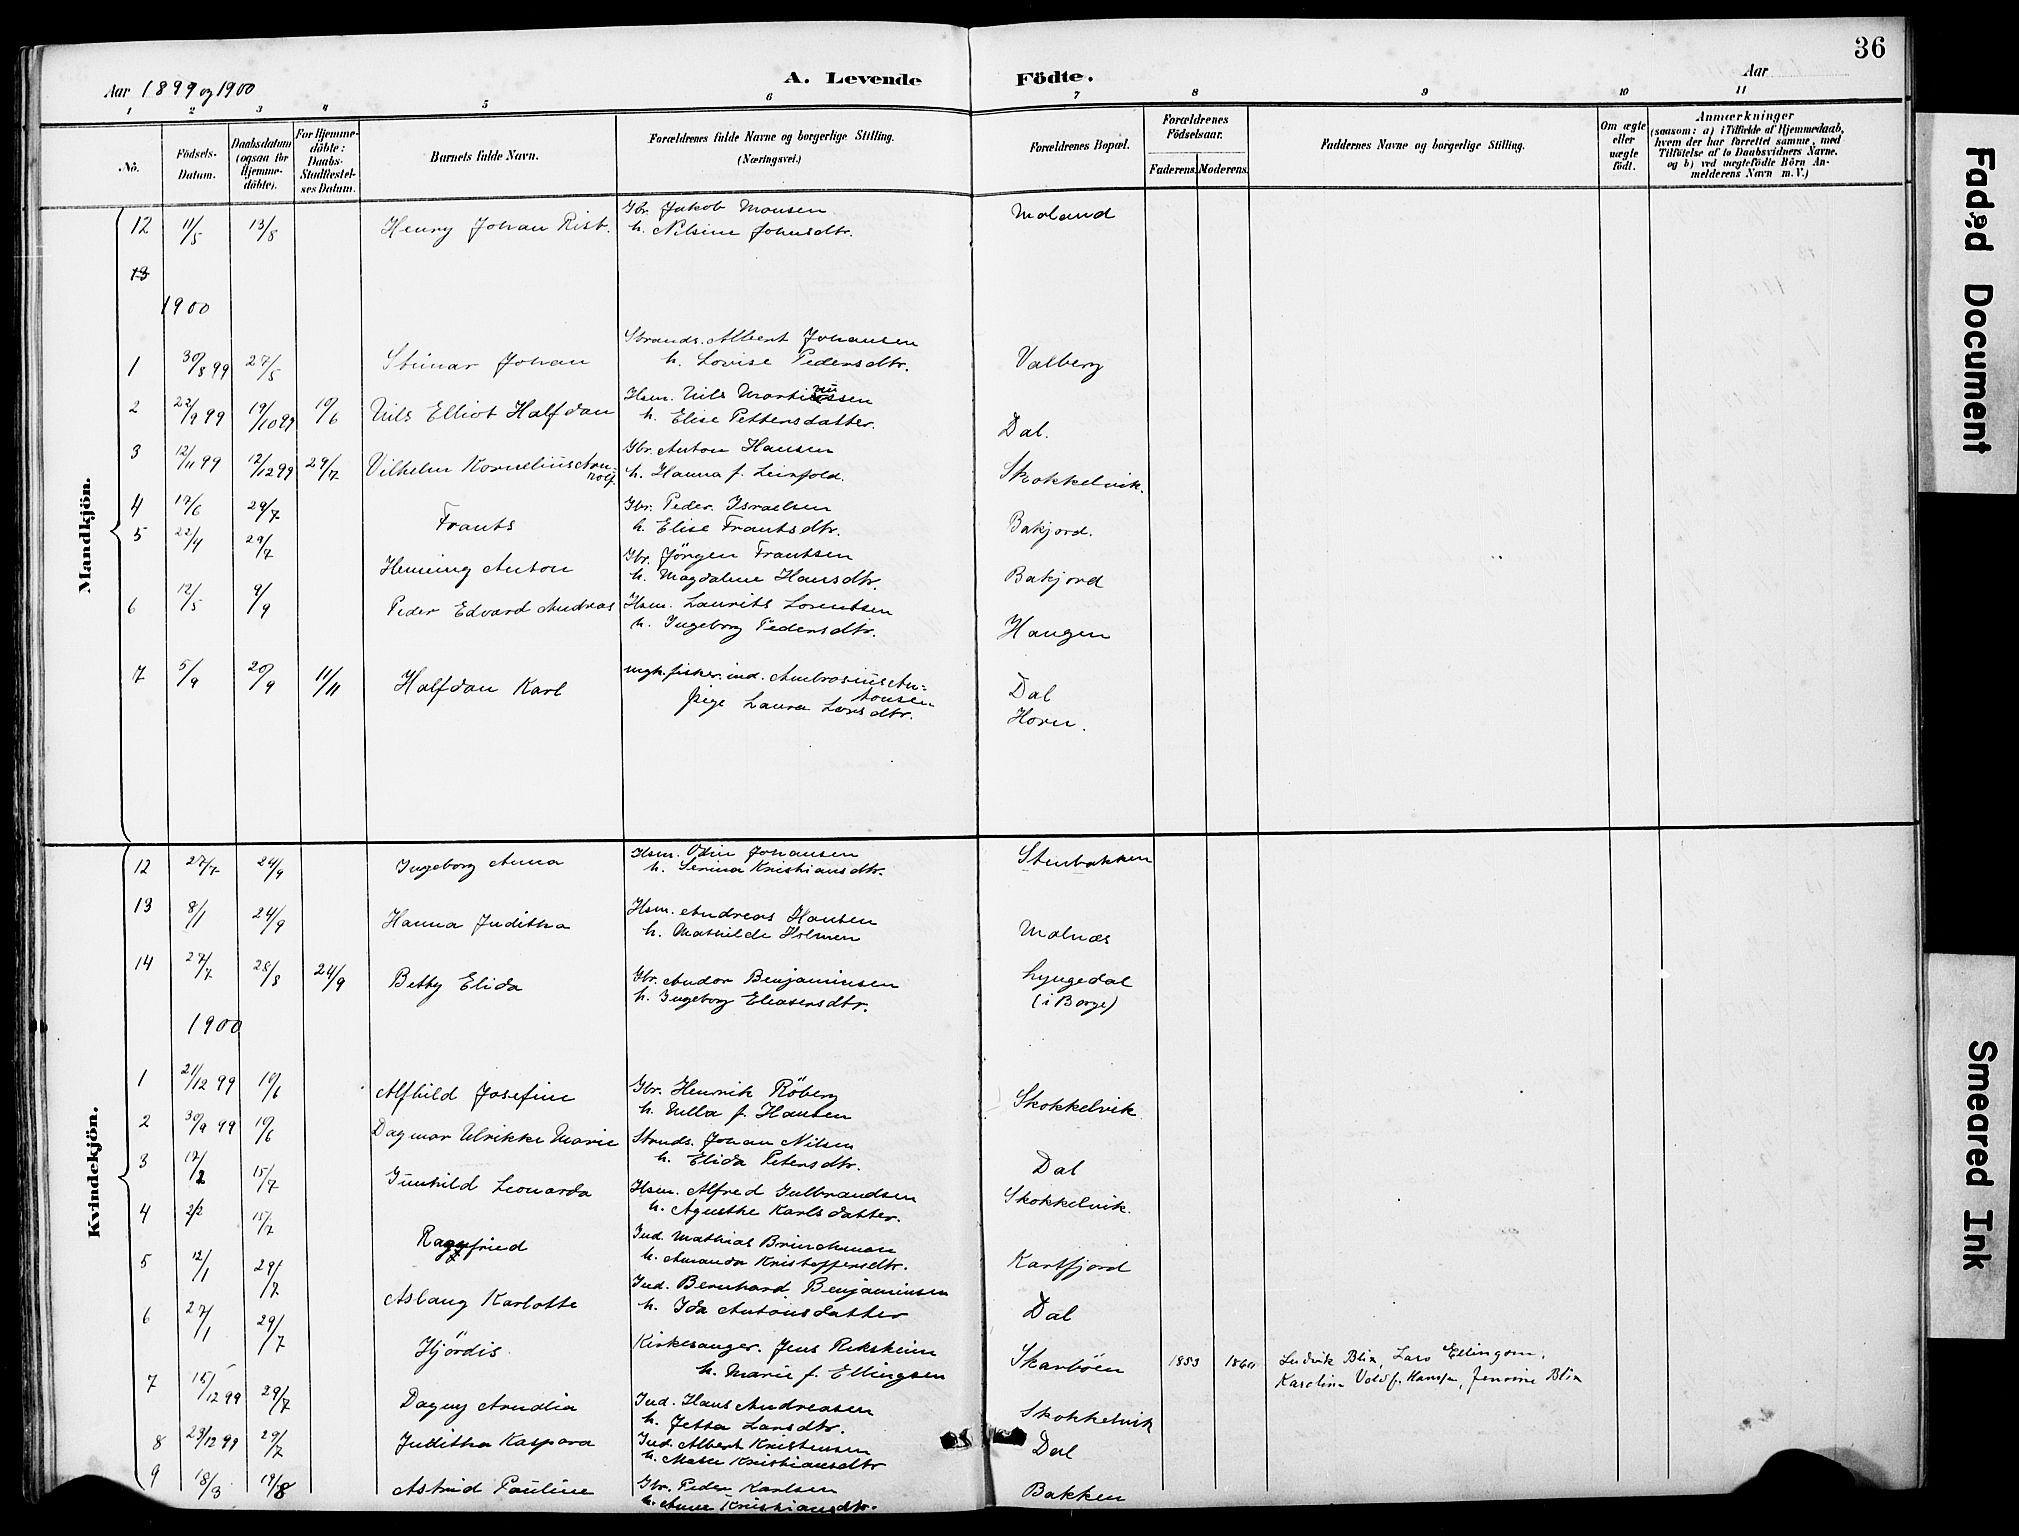 36
Aar 1899 og 1900
A. Levende Födte.
Aar
1 2 3 4 5 6 7 8 9 10 11
No.
Födsels-Datum.
Daabsdatum (ogsaa for Hjemme-döbte).
For Hjemme-döbte: Daabs-Stadfæstel-ses Datum.
Barnets fulde Navn.
Forældrenes fulde Navne og borgerlige Stilling. (Næringsvei.)
Forældrenes Bopæl.
Forældrenes Födselsaar.
Faderens. Moderens.
Faddernes Navne og borgerlige Stilling.
Om ægte eller uægte födt.
Anmærkninger
(saasom: a) i Tilfælde af Hjemmedaab, hvem der har forrettet samme, med Tilföielse af to Daabsvidners Navne. og b) ved uægtefödte Börn An-melderens Navn m.V.)
Mandkjön.
12 11/5 13/8 Henry Johan Rist. Gbr. Jakob Monsen Moland
h. Nilsine Johnsdtr.
13
1900
1 30/8 99 27/5 Steinar Johan Strands. Albert Johansen Valberg
h. Lovise Pedersdtr.
2 22/9 99 19/10 99 10/6 Nils Elliot Halfdan Hsm. Nils Martinussen Dal.
h. Elise Pettersdatter.
3 12/11 99 12/12 99 29/7 Vilhelm Kornelius Arn-nolf. Gbr. Anton Hansen Skokkelvik.
h. Hanna f. Leinfold.
4 17/6 29/7 Frants Gbr. Peder Israelsen Bakjord.
h. Elise Frantsdtr.
5 22/4 29/7 Henning Anton Gbr. Jörgen Frantsen Bakjord
h. Magdalene Hansdtr.
6 12/5 9/9 Peder Edvard Andreas Hsm. Laurits Lorentsen Haugen
h. Ingeborg Pedersdtr.
7 5/9 20/9 11/11 Halfdan Karl ungk. fisker ind. Ambrosius An-tonsen Dal
Pige Laura Larsdtr. Horn.
Kvindekjön.
12 27/7 24/9 Ingeborg Anna Hsm. Odin Johansen Stenbakken
h. Serina Kristiansdtr.
13 8/1 24/9 Hanna Juditha Hsm. Andreas Hansen Molnæs
h. Mathilde Holmen
14 27/7 28/8 24/9 Betty Elida Gbr. Andor Benjaminsen Lyngedal
h. Ingeborg Eleasersdtr. (i Borge)
1900
1 21/12 99 10/6 Alfhild Josefine Gbr. Henrik Röberg Skokkelvik
h. Nilla f. Hansen
2 30/9 99 10/6 Dagmar Ulrikke Marie Strands. Johan Nilsen Dal
h. Elida Petersdtr.
3 12/2 15/7 Gunhild Leonarda Hsm. Alfred Gulbrandsen Skokkelvik.
h. Aguethe Karlsdatter.
4 2/2 15/7 Ragnfried Ind. Mathias Brinchman Kartfjord
h. Amanda Kristoffersdtr.
5 12/1 29/7 Aslaug Karlotte Ind. Bernhard Benjaminsen Dal
h. Ida Antonsdatter
6 27/1 29/7 Hjördis. Kirkesanger. Jens Reksheim Skarböen 1853 1860 Ludvik Blix, Lars Ellingsen,
h. Marie f. Ellingsen Karoline Hansen, Jennine Blix
7 15/12 99 29/7 Dagny Arndlia Ind. Hans Andreasen Skokkelvik
h. Jetta Larsdtr.
8 23/12 99 29/7 Juditha Kaspara Ind. Albert Kristensen Dal
h. Kristiansdtr
9 18/3 19/8 Astrid Pauline Gbr. Peder Karlsen Bakken
h. Anne Kristiansdtr.
Faded Document
Smeared Ink